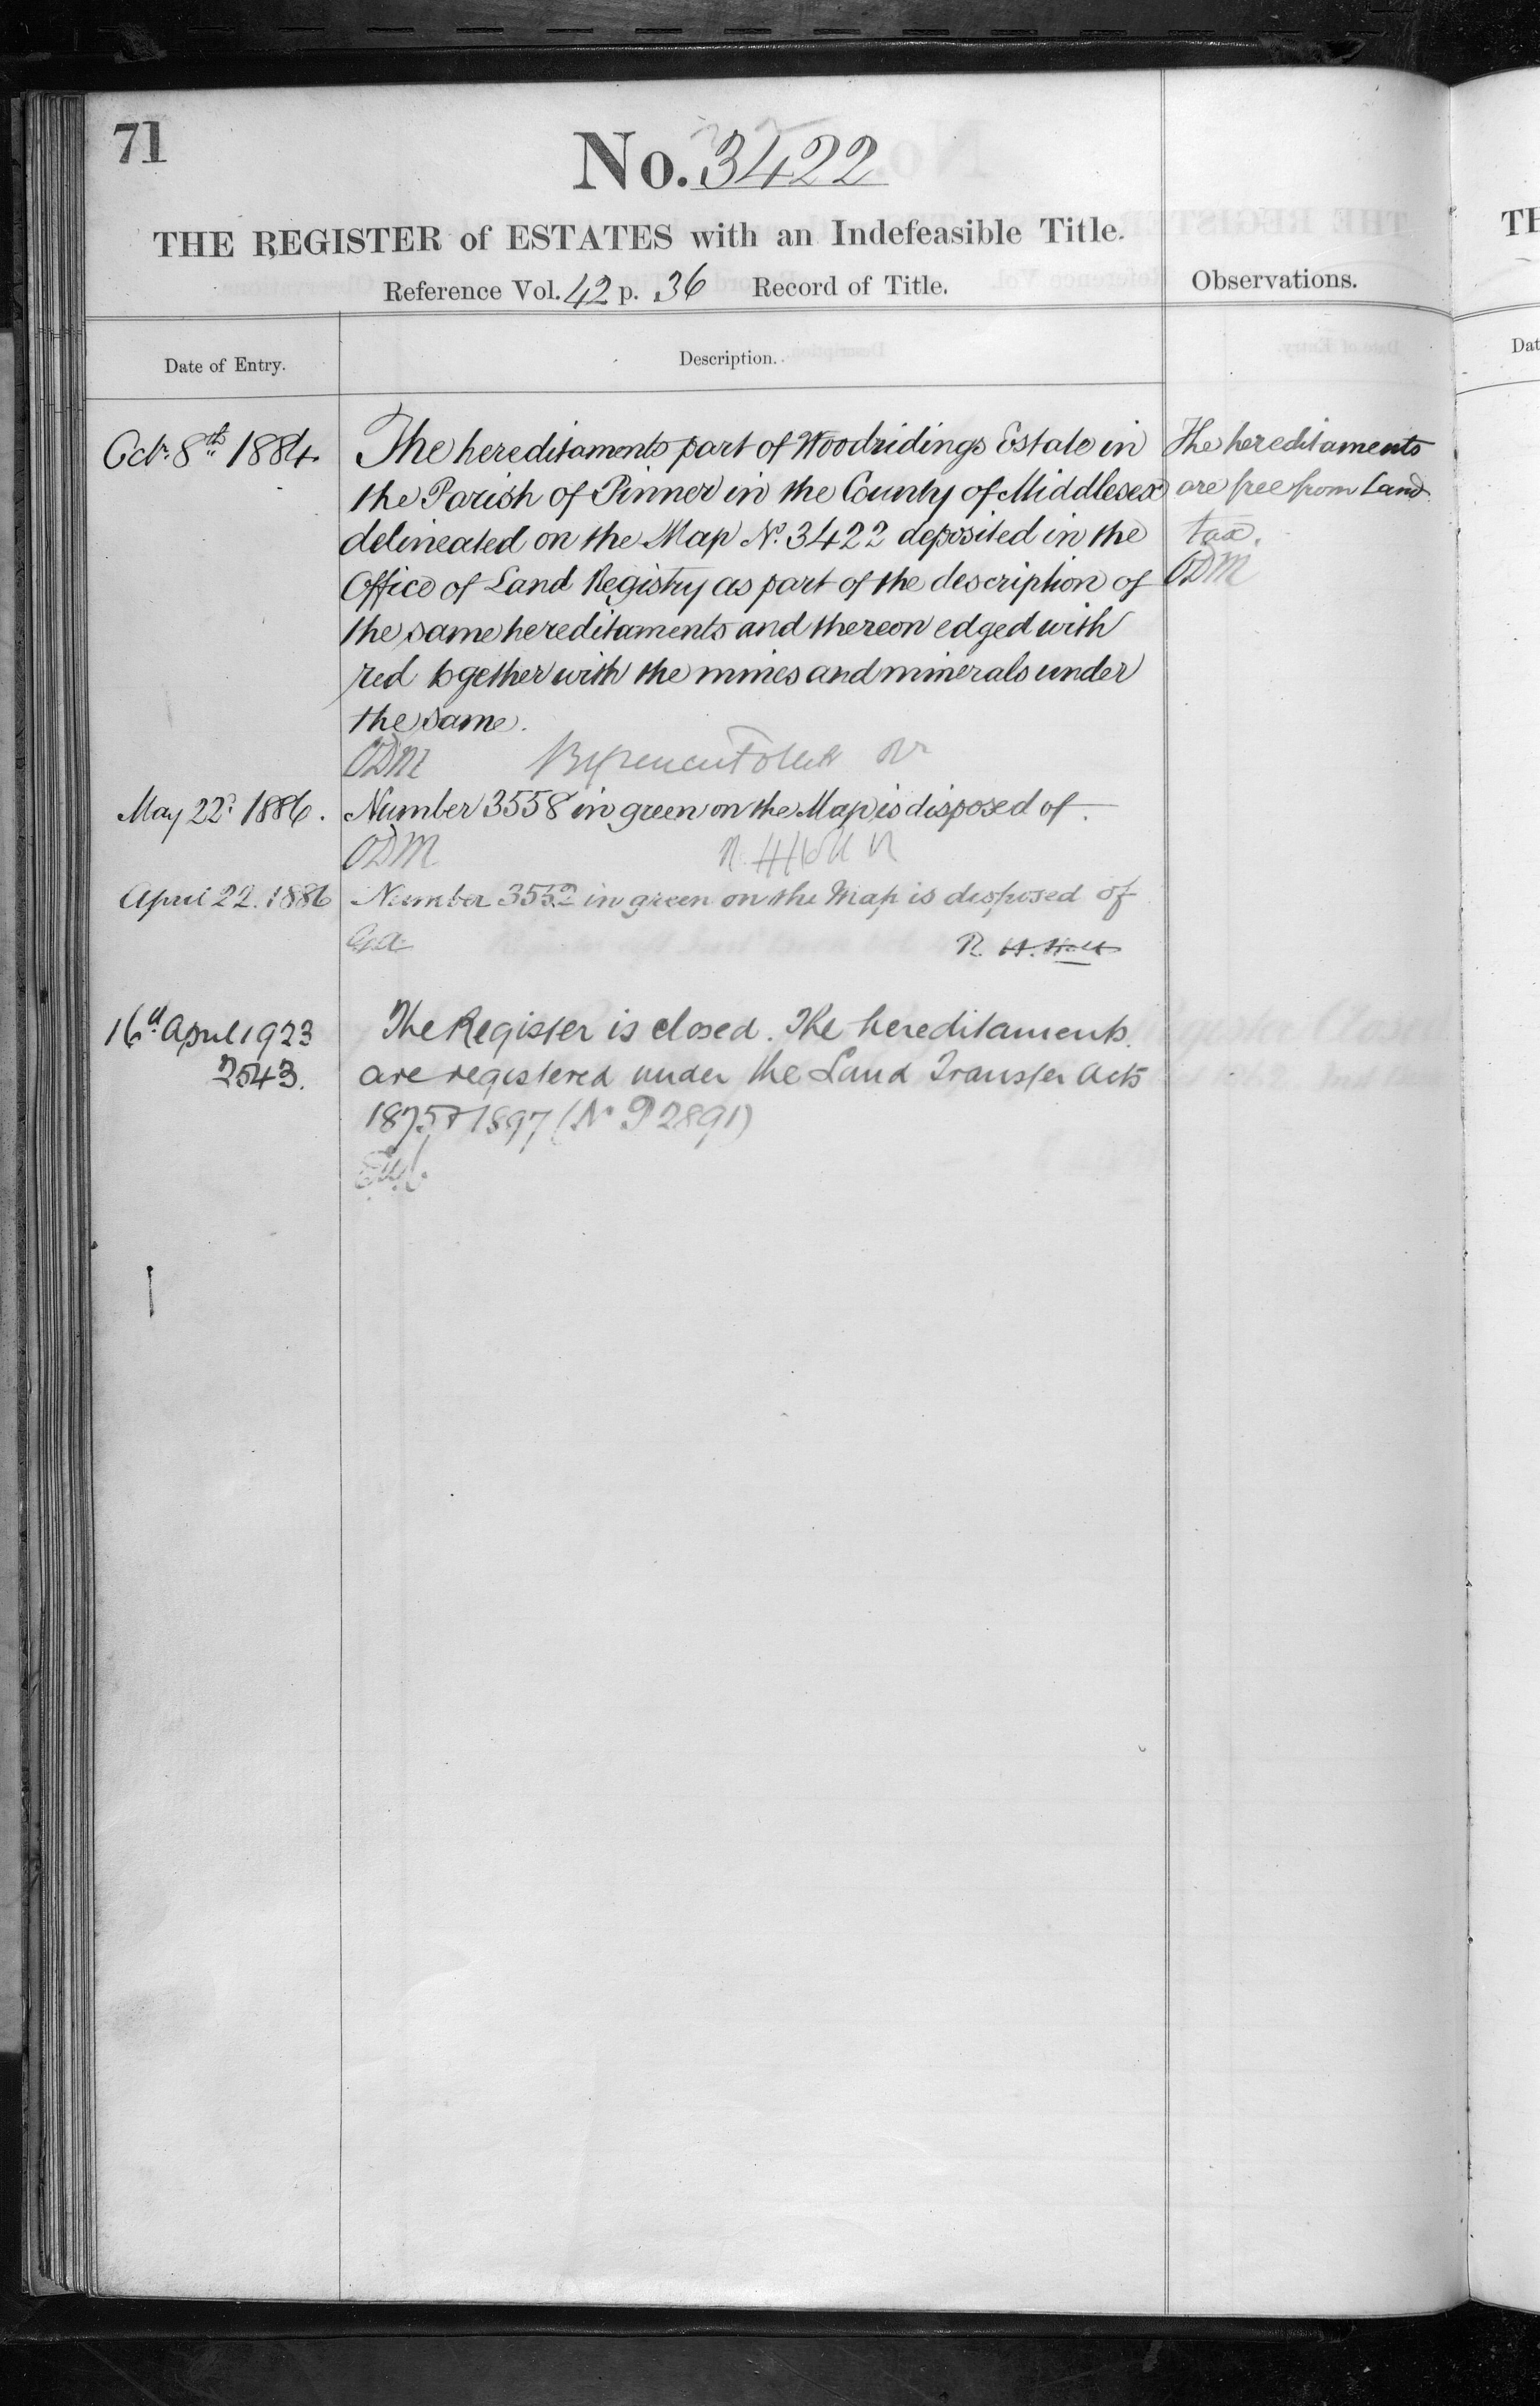 71
No. 3422
THE REGISTER of ESTATES with an Indefeasible Title.
Reference Vol. 42 p. 36 Record of Title.
Observations.
Date of Entry.
Description.
Octr. 8th 1884.
The hereditaments part of Woodridings Estate in
the Parish of Pinner in the County of Middlesex
delineated on the Map No. 3422 deposited in the
Office of Land Registry as part of the description of
the same hereditaments and thereon edged with
red together with the mines and minerals under
the same.
ODM
The hereditaments
are free from Land
tax.
ODM
May 22d. 1886.
Number 3558 in green on the Map is disposed of.
ODM
April 22. 1886
Number 3552 in green on the Map is disposed of
R. H. Holt
16th April 1923
2543.
The Register is closed. The hereditaments
are registered under the Land Transfer Acts
1875 & 1897 (No P 2891)
TH
Dat